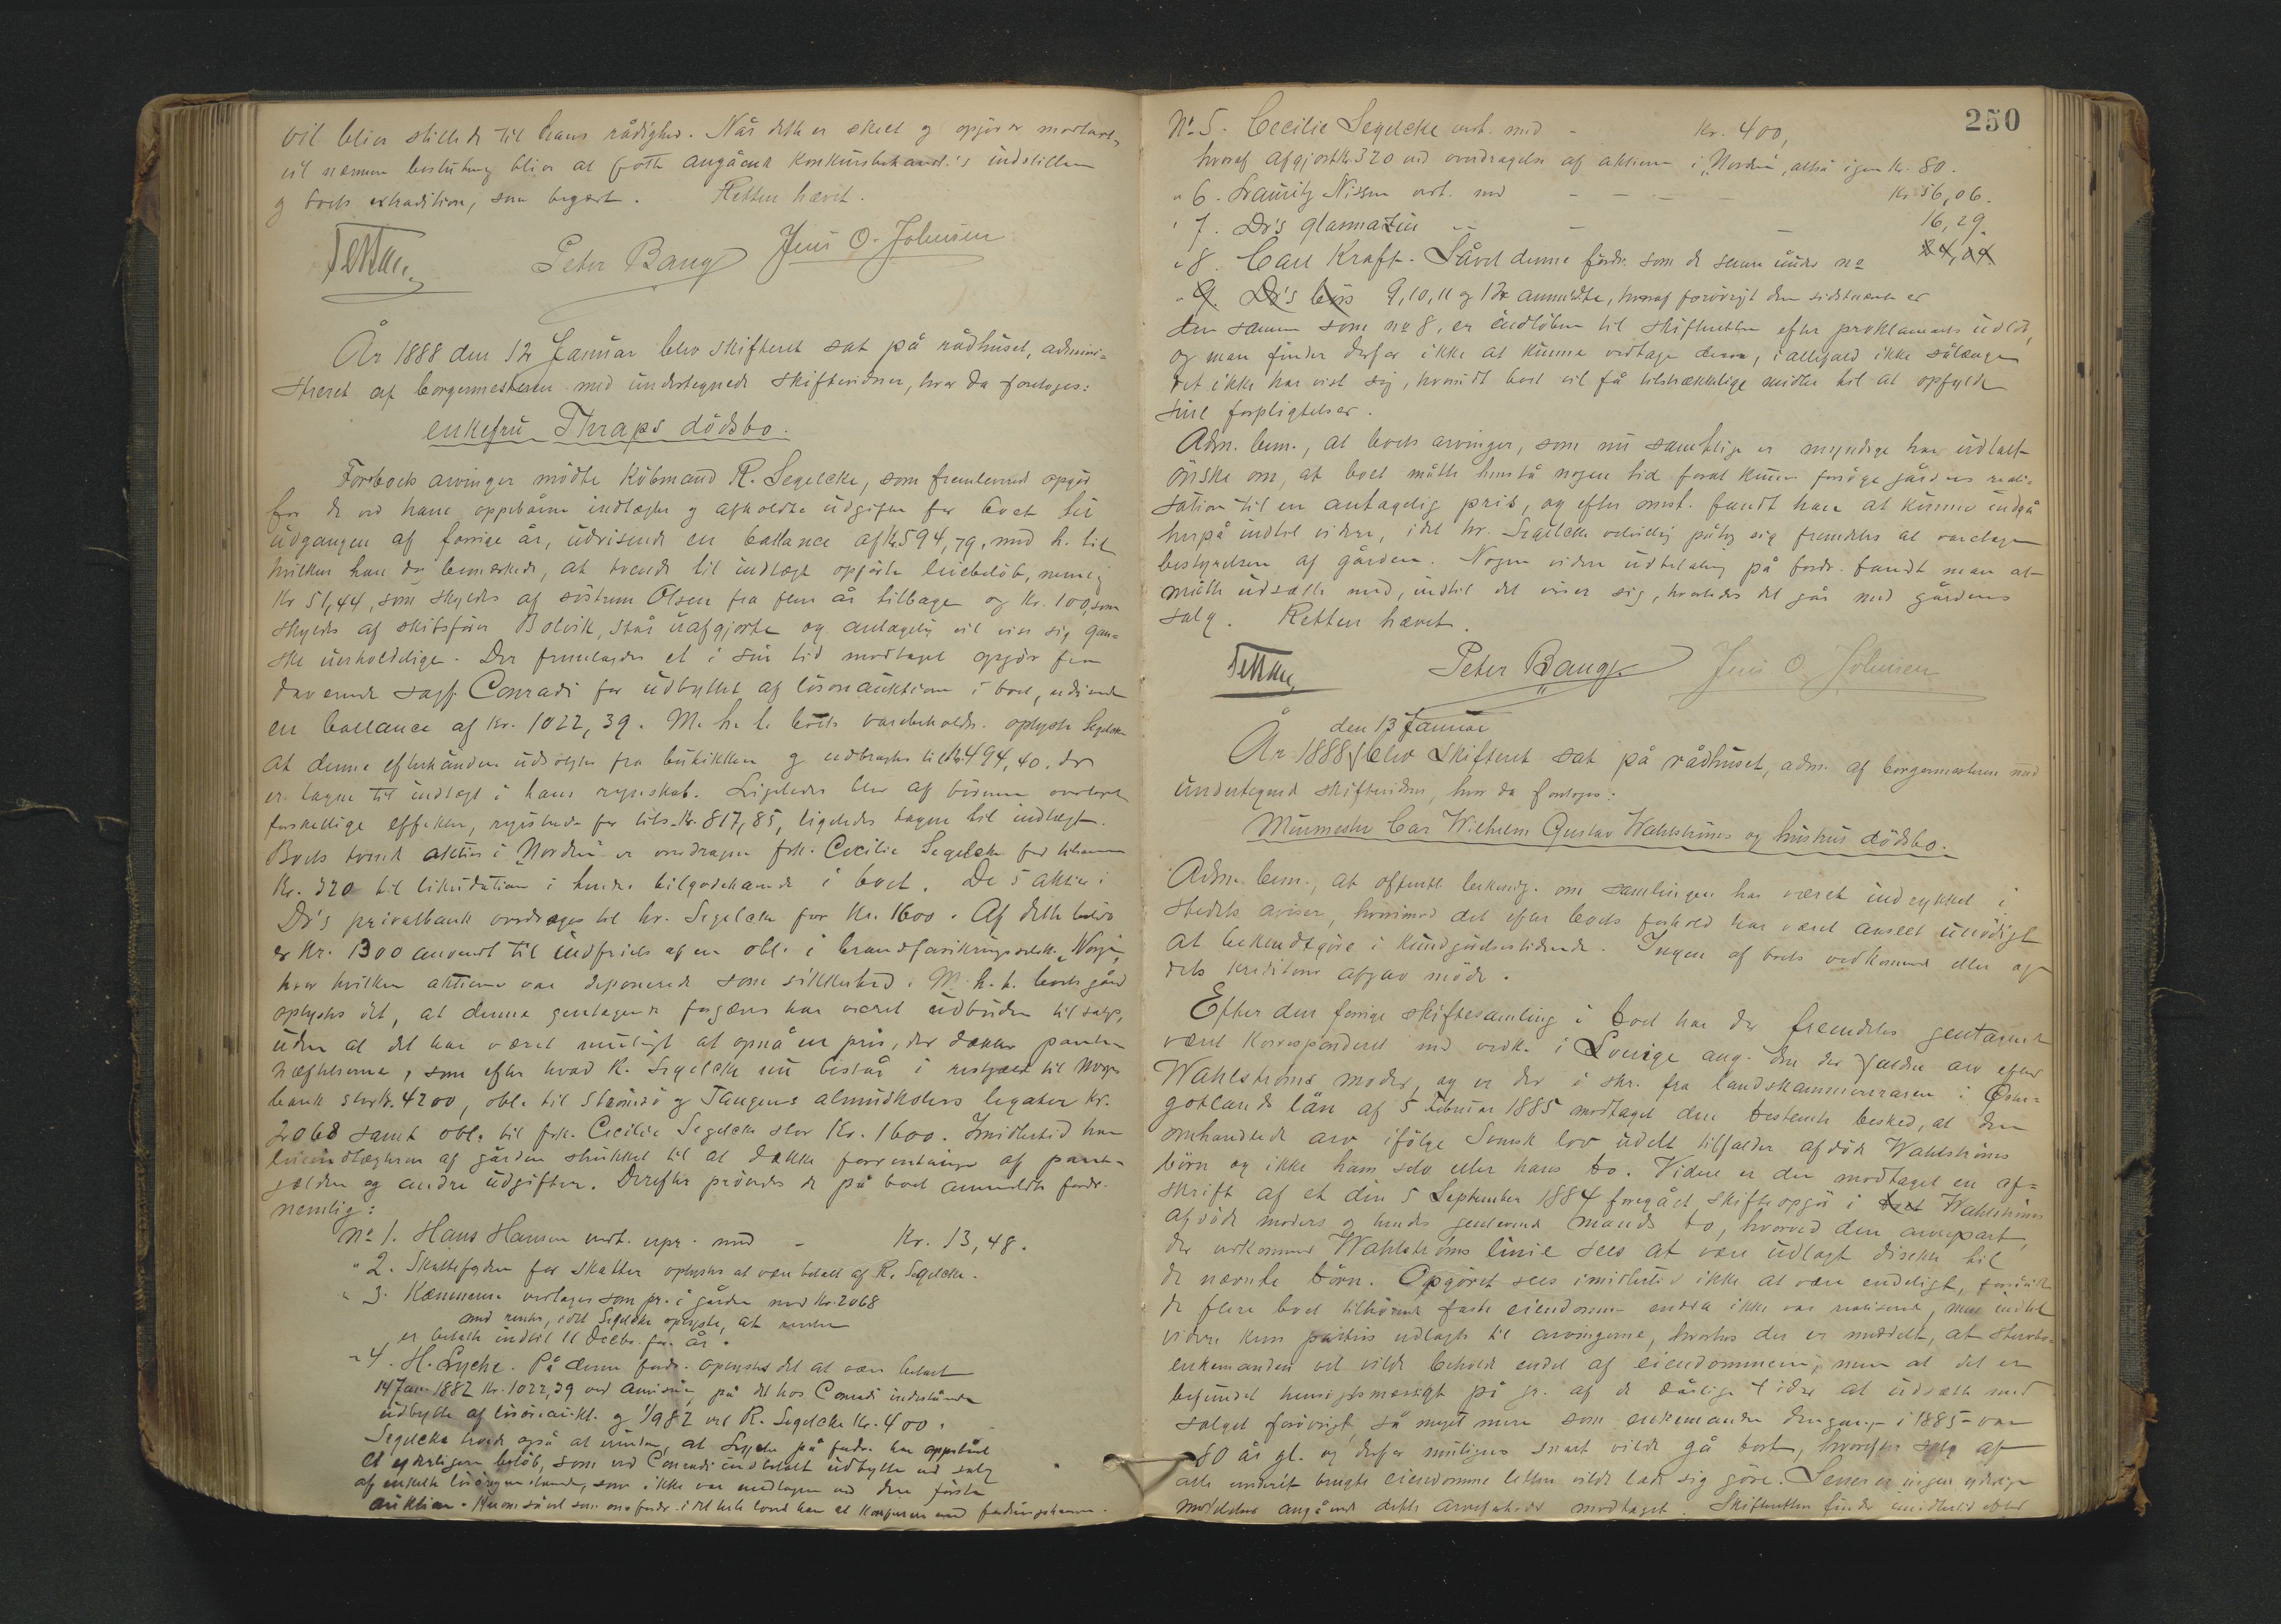 vil bliver stillede til hans rådighed. Når dette er skeet og opgjør er modtaget,
vil nærmere beslutning bliver at fatte angående konkursbehandl.'s indstillen
og boets extradition, som begjært. Retten hævet.
Peter Bang Jens O. Johnsen
År 1888 den 12 Januar blev skifteret sat på rådhuset, admini-
streret af borgermesteren med undertegnede skiftevidner, hvor da foretoges:
enkefru Thraps dödsbo.
For boets arvinger mödte Kübmand R. Segelcke, som fremleverede opgjör
for de ved ham oppebårne indtægter og afholdte udgifter for boet til
udgangen af forrige år, udvisende en ballance af Kr. 594,79, med h. til
hvilken han da bemærkede, at tvende til indtægt opförte leiebelöb, nemlig
Kr 51,44, som skyldes af söstrene Olsen fra flere år tilbage og Kr. 100, som
skyldes af skibsförer Bolvik, står uafgjorte og antagelig vil vise sig gan-
ske uerholdelige. Der fremlagdes et i sin tid modtaget opgjör fra
daværende sagf. Conradi for udbyttet af lösöreauktionen i boet, udvisende
en ballance af Kr. 1022,39. M. h. t. boets varebeholdn. oplyste Segelcke
at denne efterhånden udsolgtes fra butikken og udbragtes til Kr. 494,40, der
er tagen til indtægt i hans regnskab. Ligeledes blev af boets overtaget
forskellige effekter, registrerede for tils. Kr. 817,85, ligeledes tagne til indtægt.
Boets tvende aktier i "Norden" er overdragne frk. Cecilie Segelcke for tilsammen
Kr. 320 til likvidation i hendes tilgodehavende i boet. De 5 aktier i
Dr's privatbank overdroges til hr. Segelcke for Kr. 1600. Af dette belöb
er Kr. 1300 anvendt til indfrielse af en obl. i brandforsikringsselsk. "Norge",
hvor hvilken aktierne var deponerede som sikkerhed. M. h. t. boets gård
oplystes det, at denne gentagende forgjæves har været udbuden til salgs,
uden at det har været muligt at opnå en pris, der dækker pante-
hæftelserne, som efter hvad R. Segelcke nu består i restgæld til Norges
bank stor Kr. 4200, obl. til Strömsö og Tangens almueskolers legater Kr.
2068 samt obl. til frk. Cecilie Segelcke stor Kr. 1600. Imidlertid har
leieindtægterne af gården strukket til at dække forrentningen af pante-
gælden og andre udgifter. Derefter prövedes de på boet anmeldte fordr.
nemlig:
No 1. Hans Hansen vedt. repr. med - Kr. 13,48.
" 2. Skattefogden for skatter oplystes at være betalt af R. Segelcke.
" 3. Kæmneren vedtages som pr. i gården med Kr. 2068
med renter, idet Segelcke oplyste, at renten
er betalt indtil 11 Decbr. f. år.
" 4. H. Lyche. På denne fordr. oplystes det at være betalt
14 Jan. 1882 Kr. 1022,39 ved anvisning på det hos Conradi indestående
udbytte af lösöreaukt. og 1/9 82 ved R. Segelcke Kr. 400.
Segelcke troede også at vide, at Lyche på fordr. har oppebåret
et yderligere belöb, som ved Conradi indbetalt udbytte ved salg
af enkelte lösöregjenstande, som ikke var medtagne ved den förste
auktion.
250
No 5. Cecilie Segelcke vedt. med - Kr. 400,
hvoraf afgjort Kr. 320 ved overdragelse af aktierne i "Norden", altså igjen Kr. 80.
" 6. Lauritz Nissen vedt. med - - - - Kr. 56,06.
" 7. Dr's glasmazin - - - 16,29.
" 8. Carl Kraft. Såvel denne fordr. som de senere under no 24,04
" 9. Dr's bøis 9, 10, 11 og 12 anmeldte, hvoraf forövrigt den sidstnævnte er
den samme som no 8, er indlöben til skifteretten efter proklamaets udlöb,
og man finder derfor ikke at kunne vedtage dem, i allefald ikke sålænge
det ikke har vist sig, hvorvidt boet vil få tilstrækkelige midler til at opfylde
sine forpligtelser.
Adm. bem., at boets arvinger, som nu samtlige er myndige har udtalt
önske om, at boet måtte henstå nogen tid forat kunne forsöge gårdens reali-
sation til en antagelig pris, og efter omst. fandt han at kunne indgå
herpå indtil videre, idet hr. Segelcke velvillig påtog sig fremdeles at varetage
bestyrelsen af gården. Nogen videre udbetaling på fordr. fandt man at
måtte udsætte med, indtil det viser sig, hvorledes det går med gårdens
salg. Retten hævet.
Peter Bang. Jens O. Johnsen
den 13 Januar
År 1888 blev skifteret sat på rådhuset, adm. af borgermesteren med
undertegnede skiftevidner, hvor da foretoges:
Murmester Carl Wilhelm Gustav Wahlströms og hustrus dödsbo.
Adm. bem., at offentl. bekendtg. om samlingen har været indrykket i
stedets aviser, hvorimod det efter boets forhold har været anseet unödigt
at bekendtgöre i kundgörelsestidende. Ingen af boets vedkommende eller og
dets kreditorer afgav möde.
Efter den forrige skiftesamling i boet har der fremdeles gentagende
været korresponderet med vedk. i Sverige ang. den der faldne arv efter
Wahlströms moder, og er der i skr. fra landskammereraren i Öster-
gotlands län af 5 Februar 1885 modtaget den bestemte besked, at den
omhandlede arv ifölge Svensk lov udelt tilfalder afdöde Wahlströms
börn og ikke ham selv eller hans bo. Videre er der modtaget en af-
skrift af et den 5 September 1884 foregået skifteopgjör i boet Wahlströms
afdöde moders og hendes gjenlevende mands bo, hvorved den arvepart,
der vedkommer Wahlströms linie sees at være udlagt direkte til
de nævnte börn. Opgöret sees imidlertid ikke at være endeligt, forsåvidt
de flere boet tilhörende faste eiendomme endda ikke var realiserede, men indtil
videre kun partivis udlagte til arvingerne, hvorhos der er meddelt, at sterbs-
enkemanden vel vilde beholde endel af eiendommene, men at det er
befundet hensigtsmæssigt på gr. af de dårlige tider at udsætte med
salget forövrigt, så meget mere som enkemanden dengang i 1885 var
80 år gl. og derfor muligens snart vilde gå bort, hvorefter salg af
alle underet brugte eiendomme lettere vilde lade sig göre. Senere er ingen yderligere
meddelelse angående dette arvefald modtaget. Skifteretten finder imidlertid efter